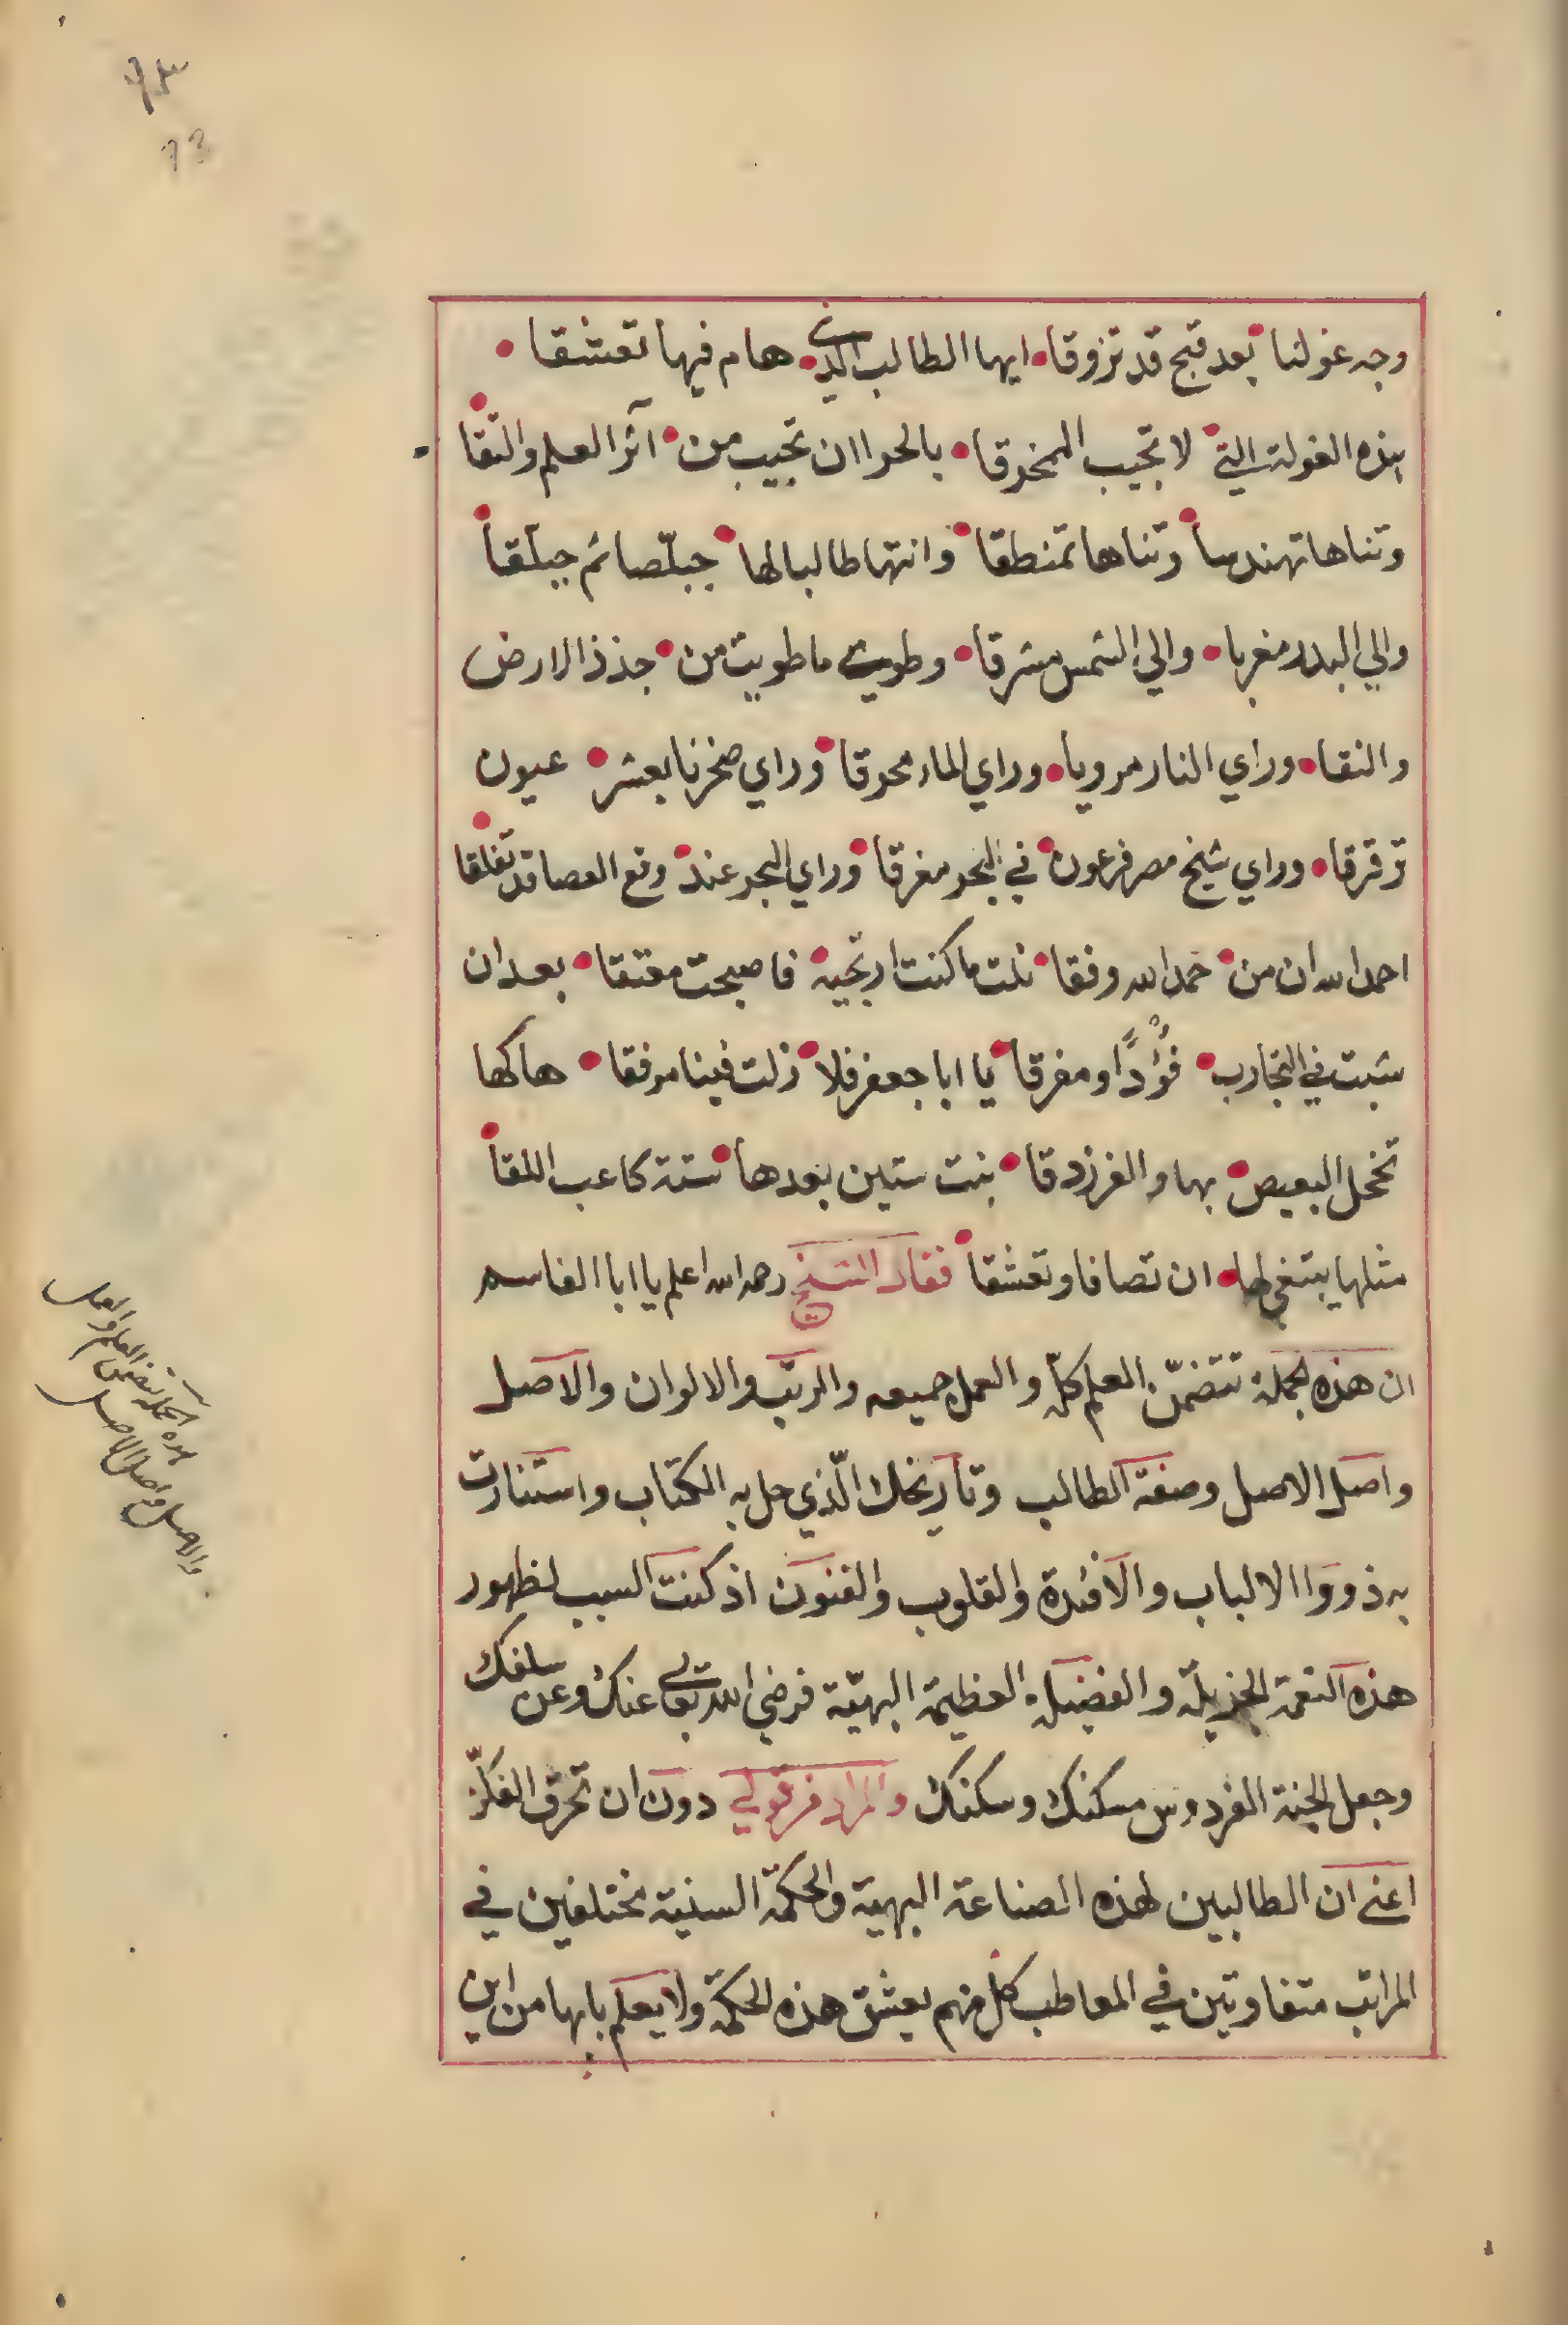 ٧٣
73
وجه غولنا • بعد قبح قد تزوقا • ايها الطالب الذي • هام فيها تعشقا •
هذه الغولة التي • لا تجيب الممخرقا • بالحرا ان تجيب من • آثر العلم والتقا •
وتناها تهندسا • وتناها تمنطقا • وانتها طالبا لها • جبلّصا ثم جبلّقا •
والي البدر مغربا • والي الشمس مشرقا • وطويت ما طويت من • جذذ الارض
والنقا • وراي النار مرويا • وراي الماء محرقا • وراي صخرنا بعشر • عيون
ترقرقا • وراي شيخ مصر فرعون • في البحر مغرقا • وراي البحر عند • وقع العصا قد تفلقا •
احمد الله ان من • حمد الله وفقا • نلت ما كنت ارتجيه • فاصبحت معتقا • بعد ان
شبت في التجارب • فؤدًا ومفرقا • يا ابا جعفر فلا • زلت فينا مرفقا • هاكها
تخجل البعيص • بها والفرزدقا • بنت ستين بعدها • ستة كاعب اللقا •
مثلها يبتغي لها • ان تصافا وتعشقا • فقال الشيخ رحمه الله اعلم يا ابا القاسم
ان هذه الجملة تتضمّن العلم كلّه والعمل جميعه والرتب والالوان والاصل
واصل الاصل وصفة الطالب وتاريخك الّذي حل به الكتاب واستنارت
به ذووا الالباب والافئدة والقلوب والفنون اذ كنت السبب لظهور
هذه النعمة الجزيلة والفضيلة العظيمة البهيّة فرضي الله تعالي عنك وعن سلفك
وجعل الجنة الفردوس مسكنك وسكنك والمراد في قولي دون ان تحرق الفكّر
اعني ان الطالبين لهذه الصناعة البهية والحكمة السنية مختلفين في
المراتب متفاوتين في المعاطب كل منهم يعشق هذه الحكمة ولا يعلم بابها من اين
هذه الجملة تتضمن العلم والعمل
والاصل واصل الاصل